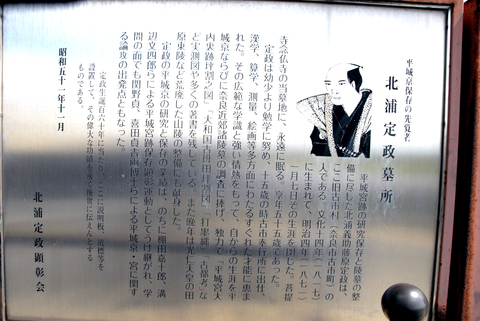 平城京保存の先覚者
北浦定政墓所
平城宮跡の研究保存と陵墓の整
備に尽した北浦義助藤原定政は、
ここ旧古市村(奈良市古市町)の
人である。文化十四年(一八一七)
に生まれて、明治四年(一八七一)
一月七日その生涯を閉じた。菩提
寺念仏寺の当墓地に、永遠に眠る。享年五十五歳であった。
定政は幼少より勉学に努め、十五歳の時古市奉行所に出仕、
漢学、算学、測量、絵画等多方面にわたるすぐれた才能に恵ま
れた。その広範な学識と強い情熱をもって、自からの生涯を平
城京ならびに奈良近郊諸陵墓の調査に捧げ、独力で「平城宮大
内裏跡坪割之図」「大和国古班田坪割図」「打墨縄」「古都考」な
ど実測図や多くの著書を残している。また晩年は光仁天皇の田
原東陵など荒廃した山陵の整備にも献身した。
定政の平城京の研究と保存の業績は、のちに棚田嘉十郎、溝
辺文四郎らによる平城宮跡保存顕彰運動としてうけ継がれ、学
問の面でも関野貞、喜田貞吉両博士による平城京・宮に関す
る論攻の出発点ともなった。
定政生誕百六十年に当たり、ここに説明板、道標等を
設置して、その偉大な功績を永く後世に伝えんとする
ものである。
昭和五十一年十一月
北浦定政顕彰会